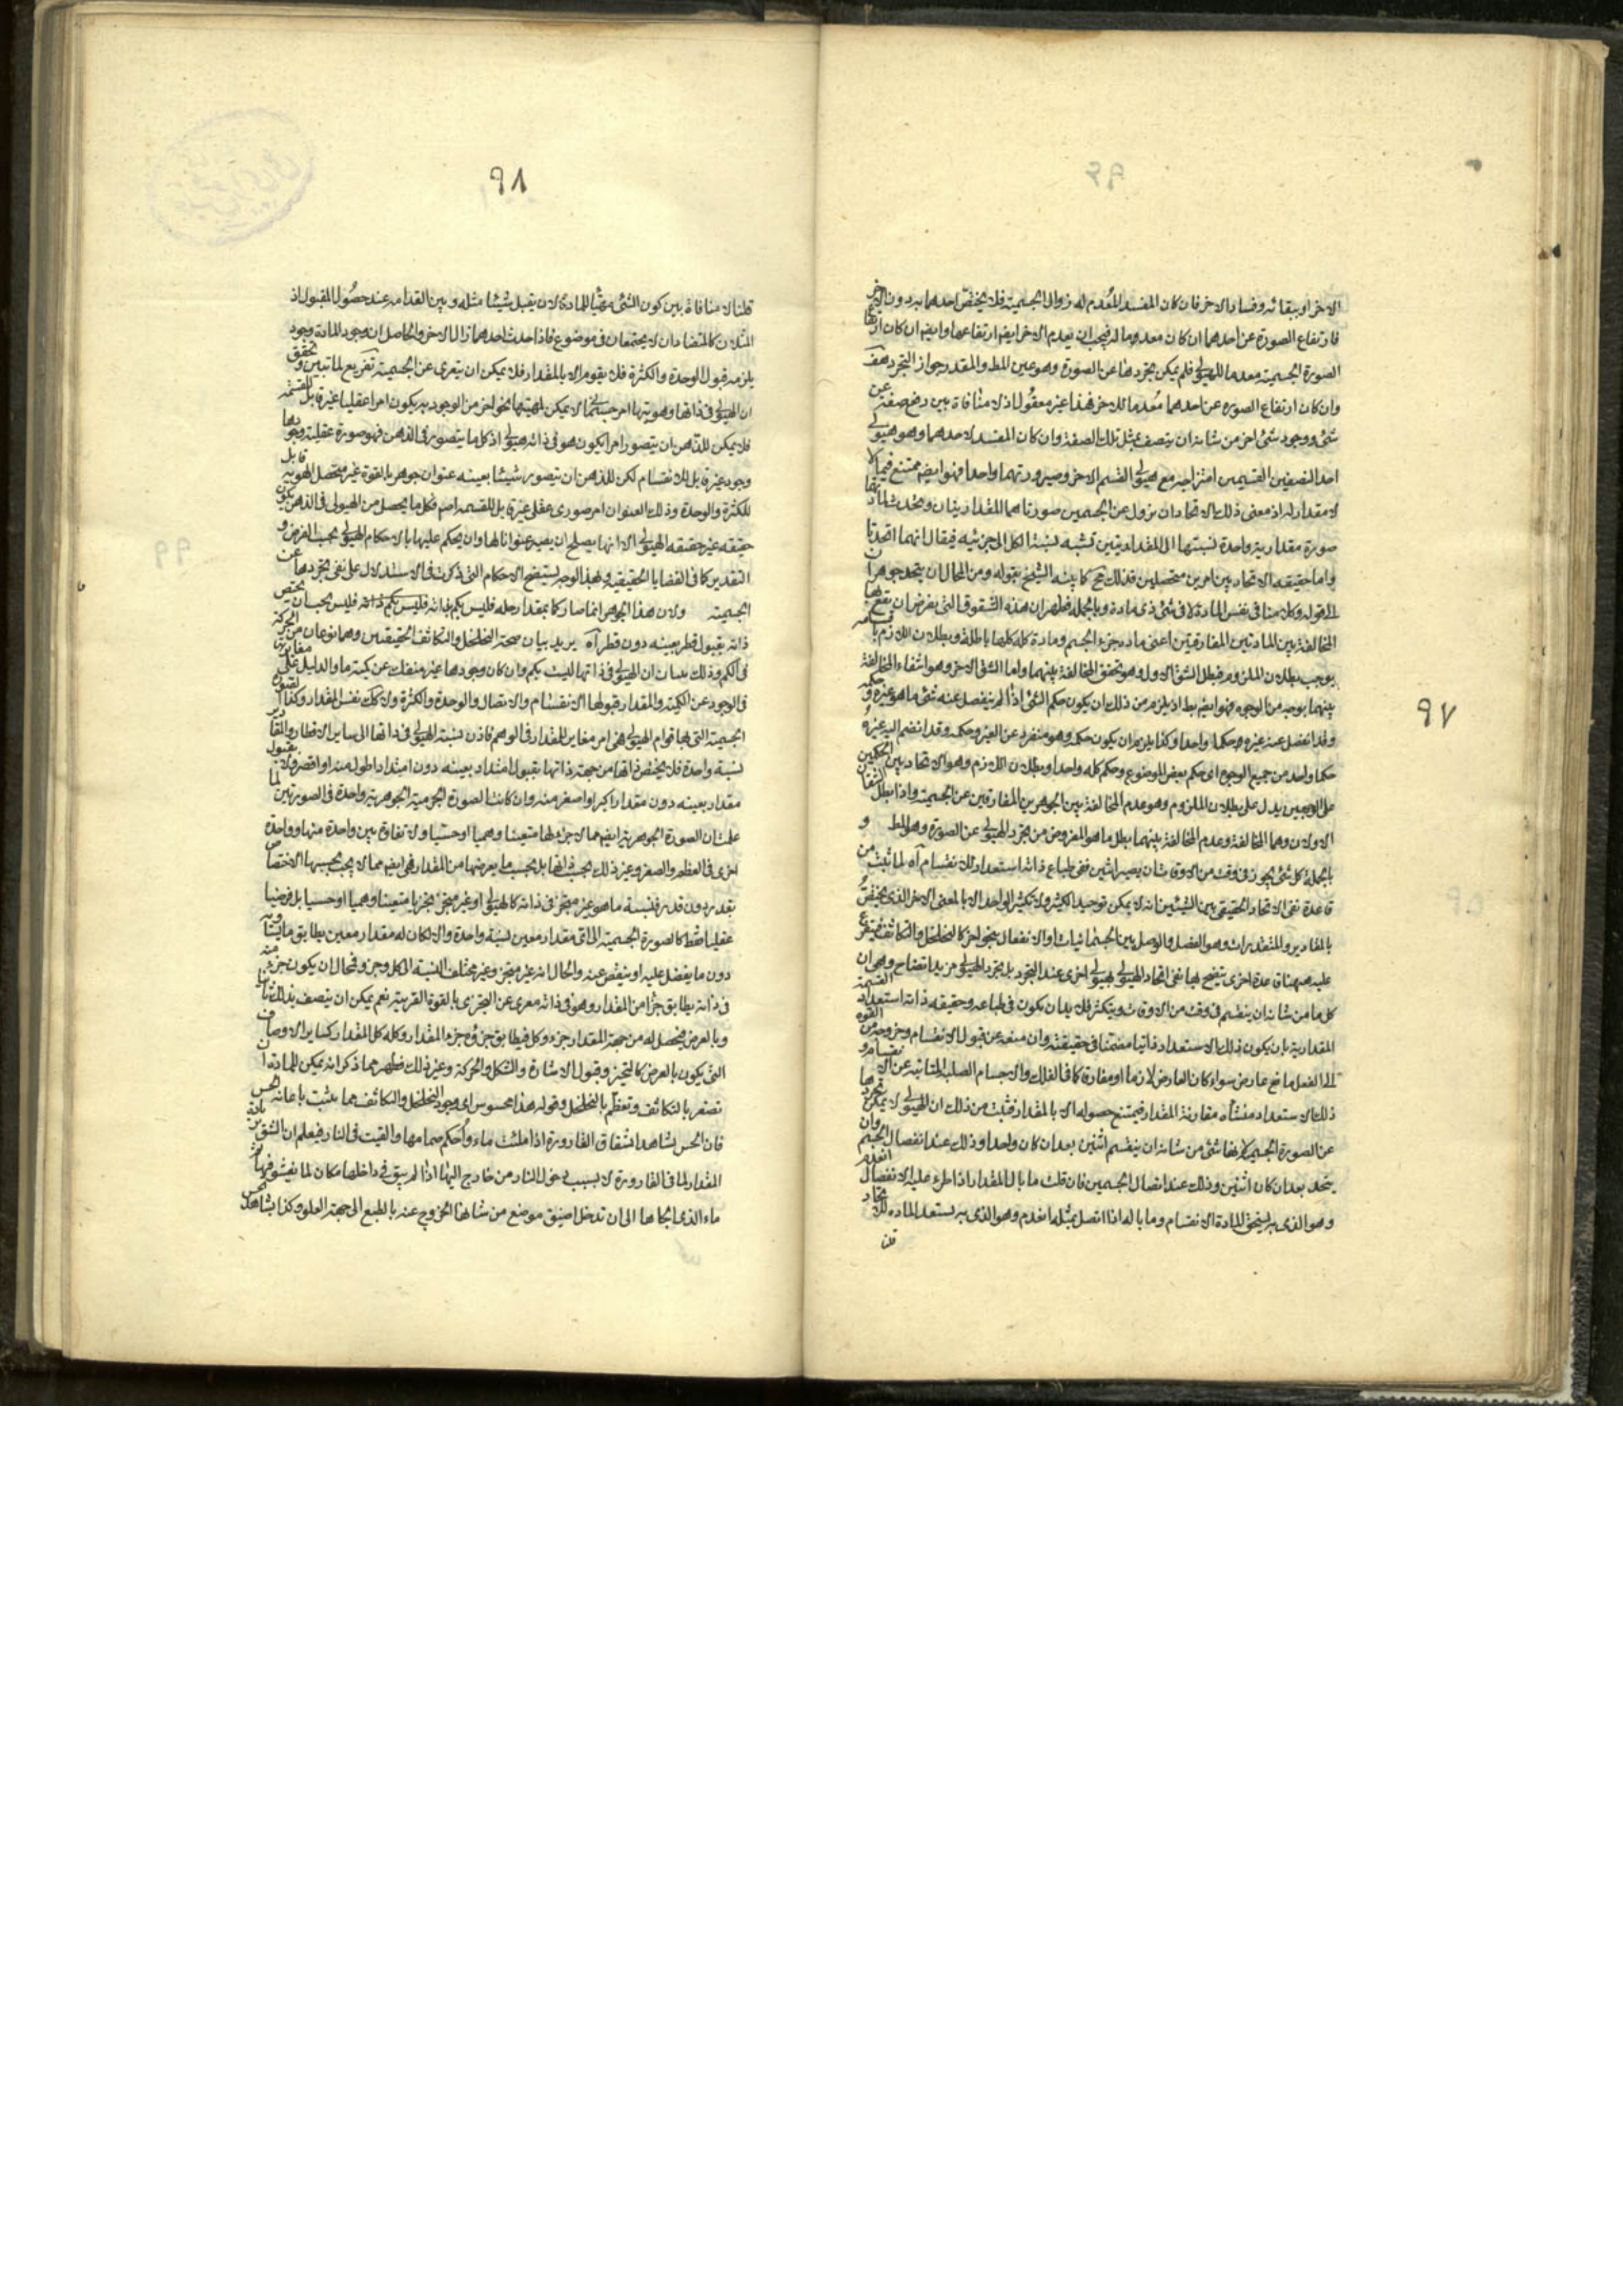 ٩٧
الاخر او ببقائه وفساد الاخر فان كان المفسد المُعْدِم له زوال الجسمية فلا يختص احدهما به دون الاخر
فارتفاع الصورة عن احدهما ان كان معدوما له فيجب ان يعدم الاخر ايضم ارتفاعها وايضم ان كان ارتفاع
الصورة الجسمية معدما للهيولى فلم يمكن تجردها عن الصورة وهو عين المط والمقدر جواز التجرد هف
وان كان ارتفاع الصوره عن احدهما مُعدما للاخر فهذا غير معقول اذ لا منافاة بين رفع صفة عن
شئ ووجود شئ اخر من شانه ان يتصف بمثل تلك الصفة وان كان المفسد لاحدهما وهو هيولى
احد النصفين القسيمين امتزاجه مع هيولى القسم الاخر وصيرورتهما واحدا فهو ايضم ممتنع فيما لا
لا مقدار له اذ معنى ذلك الاتحاد ان يزول عن الجسمين صورتاهما المقداريتان ويحدث لمادتهما
صورة مقدارية واحدة نسبتها الى المقداريتين تشبه نسبة الكل الى جزئيه فيقال انهما اتحدتا
واما حقيقه الاتحاد بين امرين متحصلين فذلك مح كما بينه الشيخ بقوله ومن المحال ان يتحد جوهران
الى قوله وكلامنا فى نفس المادة لا فى شئ ذى مادة وبالجمله فظهر ان هذه الشقوق التى يفرض ان تقع بها
المخالفة بين المادتين المفارقتين اعنى مادة جزء الجسم ومادة كله كلها باطلة وبطلان اللازم
يوجب بطلان الملزوم فبطل الشق الاول وهو تحقق المخالفة بينهما واما الشق الاخر وهو انتفاء المخالفة
بينهما بوجه من الوجوه فهو ايضم بط اذ يلزم من ذلك ان يكون حكم الشئ اذا لم ينفصل عنه شئ ما هو غيره وحكمه
وقد انفصل عنه غيره حكما واحدا وكذا يلزم ان يكون حكمه وهو منفرد عن الغير وحكمه وقد انضم اليه غيره
حكما واحدا من جميع الوجوه اى حكم بعض الموضوع وحكم كله واحدا وبطلان اللازم وهو الاتحاد بين الحكمين
على الوجهين يدل على بطلان الملزوم وهو عدم المخالفة بين الجوهرين المفارقين عن الجسمية واذا بطل الشقان
الاولان وهما المخالفة وعدم المخالفة بينهما بطل ما هو المفروض من تجرد الهيولى عن الصورة وهو المط و
بالجملة كل شئ يجوز فى وقت من الاوقات ان يصير اثنين ففى طباع ذاته استعداد للانقسام آه لما ثبت من
قاعدة نفى الاتحاد الحقيقى بين الشيئين انه لا يمكن توحيد الكثير ولا تكثير الواحد الا بالمعنى الاخر الذى يختص
بالمقادير والمتقدرات وهو الفصل والوصل بين الجسمانيات او الانفعال بنحو اخر كالتخلخل والتكاثف فيتفرع
عليه ههنا قاعدة اخرى يتضح بها نفى اتحاد الهيولى بهيولى اخرى عند التجرد بل تجرد الهيولى مزيد اتضاح وهى ان
كل ما من شانه ان ينقسم فى وقت من الاوقات ويتكثر فلابد ان يكون فى طباعه وحقيقه ذاته استعداد القسمة
المقدارية بان يكون ذلك الاستعداد ذاتيا مضمنا فى حقيقته وان منعه عن قبول الانقسام وخروجه من القوه
الى الفعل مانع عارض سواء كان العارض لازما او مفارقا كما فى الفلك والاجسام الصلبة المتابية عن الانقسام و
ذلك الاستعداد منشأه مقارنة المقدار فيمتنع حصوله الا بالمقدار فثبت من ذلك ان الهيولى لا يمكن تجردها
عن الصورة الجسمية لانها شئ من شانه ان ينقسم اثنين بعد ان كان واحدا وذلك عند انفصال الجسم وان
يتحد بعد ان كان اثنين وذلك عند اتصال الجسمين فان قلت ما بال المقدار اذا طرء عليه الانفصال انعدم
وهو الذى به يستحق المادة الانقسام وما باله اذا اتصل بمثله انعدم وهو الذى به يستعد الماده للاتحاد
قلنا
٩٨
قلنا لا منافاة بين كون الشئ مهيّئا للمادة لان يقبل شيئا مثله وبين انعدامه عند حصُول المقبول اذ
المثلان كالمتضادان لا يجتمعان فى موضوع فاذا حدث احدهما زال الاخر والحاصل ان وجود المادة وجود
يلزمه قبول الوحدة والكثرة فلا يقوم الا بالمقدار فلا يمكن ان يتعرى عن الجسمية تفريع لما تبين وتحقق
ان الهيولى فى ذاتها وهويتها امر جسمانى لا يمكن لمهيتها نحو اخر من الوجود به يكون امرا عقليا غير قابل للقسمة
فلا يمكن للذهن ان يتصور امرا يكون هو فى ذاته هيولى اذ كل ما يتصور فى الذهن فهو صورة عقلية وجودها
وجود غير قابل للانقسام لكن للذهن ان يتصور شيئا بعينه عنوان جوهر بالقوة غير متحصل الهويه قابل
للكثرة والوحدة وذلك العنوان امر صورى عقلى غير قابل للقسمه اصم فكل ما يحصل من الهيولى فى الذهن يكون
حقيقه غير حقيقه الهيولى الا انها يصلح ان يصير عنوانا لها وان يحكم عليها بالاحكام الهيولى بحسب الفرض و
التقدير كما فى القضايا الحقيقيه وبهذا الوجه يستيضح الاحكام التى ذكرت فى الاستدلال على نفى تجردها عن
الجسمية ولان هذا الجوهر انما صار كما بمقدار حله فليس بكم بذاته فليس يجب ان يختص
ذاته بقبول قطر بعينه دون قطر آه يريد بيان صحة التخلخل والتكاثف الحقيقيين وهما نوعان من الحركة
فى الكم وذلك ببيان ان الهيولى فى ذاتها ليست بكم وان كان وجودها غير منفك عن كمية ما والدليل على مغايرتها
فى الوجود عن الكمية والمقدار قبولها الانقسام والاتصال والوحدة والكثرة ولا كك نفس المقدار وكذا لصورة
الجسمية التى بها قوام الهيولى فهى امر مغاير للمقدار فى الوهم فاذن نسبة الهيولى فى ذاتها الى ساير الاقطار والمقادير
نسبة واحدة فلا يختص ذاتها من جهة ذاتها بقبول امتداد بعينه دون امتداد اطول منه او اقصر ولا بقبول
مقدار بعينه دون مقدار اكبر او اصغر منه وان كانت الصورة الجرمية الجوهرية واحدة فى الصورتين لما
علمت ان الصورة الجوهرية ايضم مما لا جزء لها متعينا وهميا او حسيا ولا تفاوت بين واحدة منها وواحدة
اخرى فى العظم والصغر وغير ذلك بحسب ذاتها بل بحسب ما يعرضها من المقدار فهى ايضم مما لا يجب بحسبها الاختصاص
بقدر دون قدر فنسبة ما هو غير متجز فى ذاته كالهيولى او غير متجز بجزء متعينا وهميا او حسيا بل فرضيا
عقليا فقط كالصورة الجسمية الى اى مقدار معين نسبة واحدة والا لكان له مقدار معين يطابق ما يساويه
دون ما يفضل عليه او ينقص عنه والحال انه غير متجز وغير مختلف النسبة الى كل وجزء فمحال ان يكون جزء منه
فى ذاته يطابق جزا من المقدار وهو فى ذاته معرى عن التجزى بالقوة القريبة نعم يمكن ان يتصف بذلك ثانيا
وبالعرض فيحصل له من جهة المقدار جزء وكل فيطابق جزؤه جزء المقدار وكله كل المقدار كساير الاوصاف
التى يكون بالعرض كالتحيز وقبول الاشارة والشكل والحركة وغير ذلك فظهر مما ذكر انه يمكن للمادة ان
تصغر بالتكاثف وتعظم بالتخلخل وقوله هذا محسوس اى وجود التخلخل والتكاثف مما يثبت باعانة الحس
فان الحس يشاهد انشقاق القارورة اذا ملئت ماء وأُحكم صمامها والقيت فى النار فيعلم ان الشق بزيادة
المقدار لما فى القارورة لا بسبب دخول النار من خارج اليها اذا لم يبق فى داخلها مكان لما يفشو فيها
ماء الذى الجاها الى ان تدخل اضيق موضع من شانها الخروج عنه بالطبع الى جهة العلو وكذا يشاهد الحس